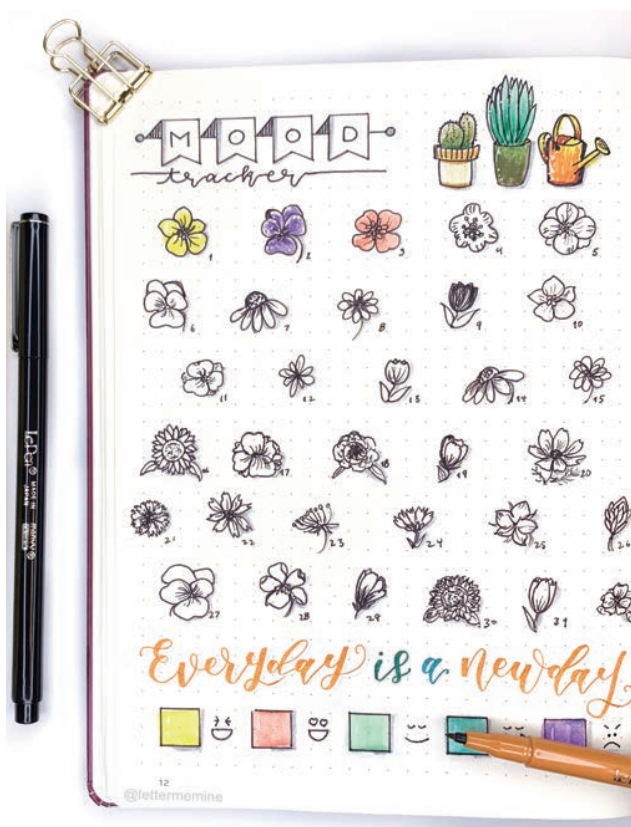 MOOD
tracker
1 2 3 4 5
6 7 8 9 10
11 12 13 14 15
16 17 18 19 20
21 22 23 24 25 26
27 28 29 30 31
Everyday is a new day
12
@lettermemine
LePen
MADE IN
JAPAN